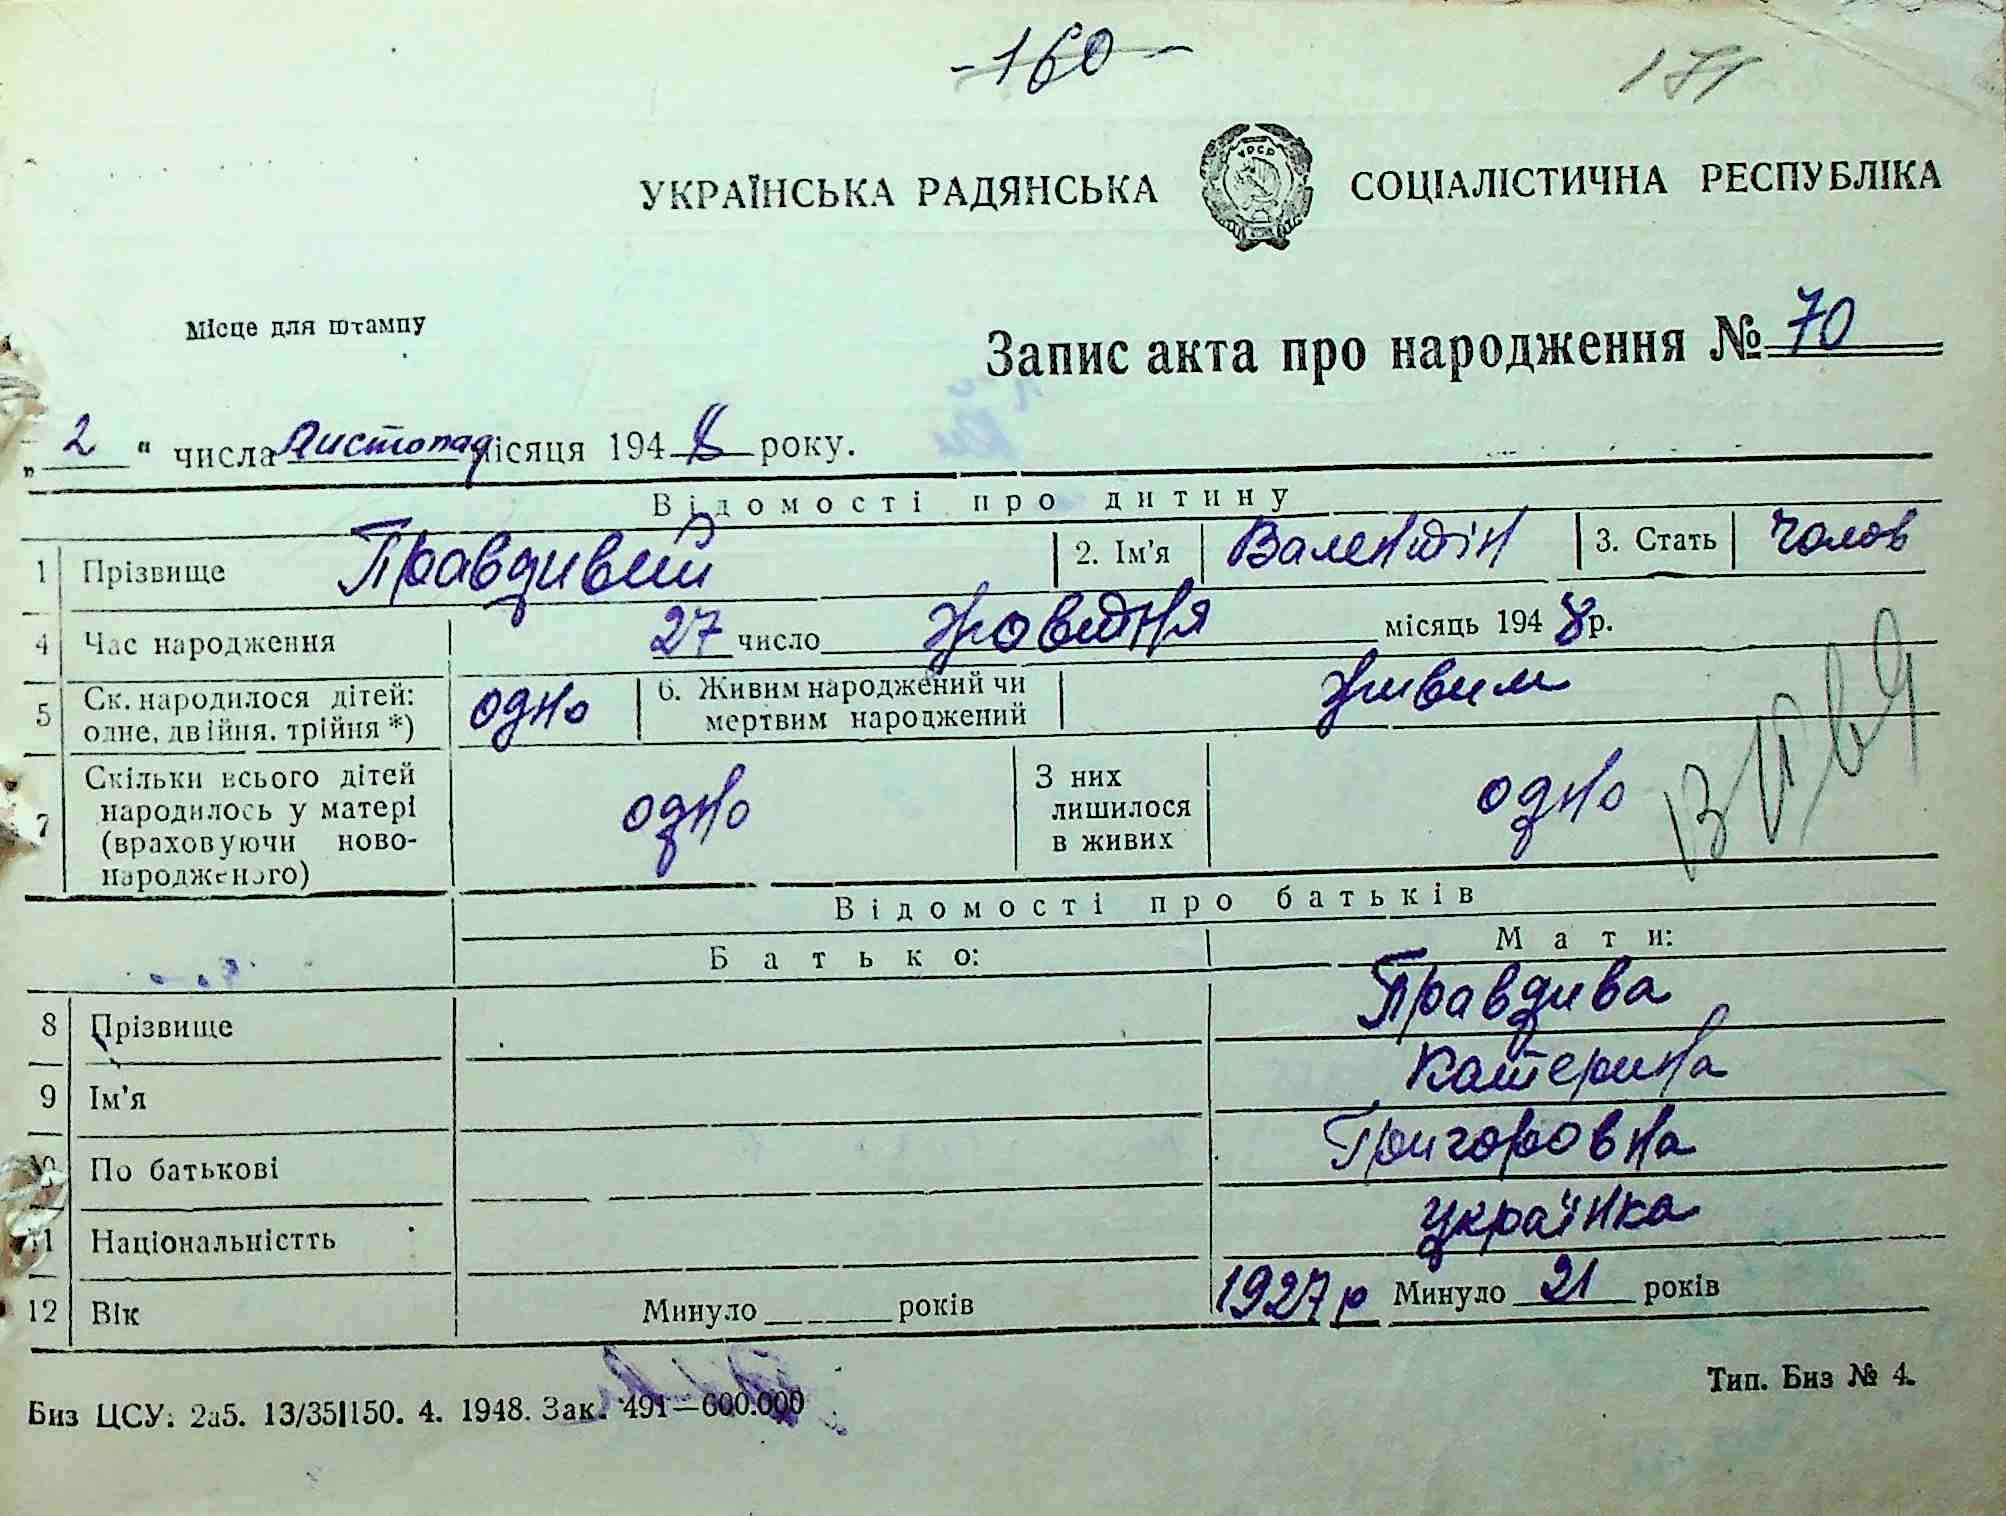 -160-
171
УКРАЇНСЬКА РАДЯНСЬКА СОЦІАЛІСТИЧНА РЕСПУБЛІКА
УРСР
Місце для штампу
Запис акта про народження № 70
„ 2 “ числа Листопад місяця 1948 року.
Відомості про дитину
1 Прізвище Правдивий 2. Ім'я Валентін 3. Стать чолов
4 Час народження 27 число жовтня місяць 1948 р.
5 Ск. народилося дітей: одне, двійня, трійня *) одно 6. Живим народжений чи мертвим народжений живим
7 Скільки всього дітей народилось у матері (враховуючи новонародженого) одно З них лишилося в живих одно
Відомості про батьків
Батько: Мати:
8 Прізвище Правдива
9 Ім'я Катерина
10 По батькові Григоровна
11 Національністть українка
12 Вік Минуло ______ років 1927 р Минуло 21 років
Биз ЦСУ: 2а5. 13/35ІІ150. 4. 1948. Зак. 491—600.000
Тип. Биз № 4.